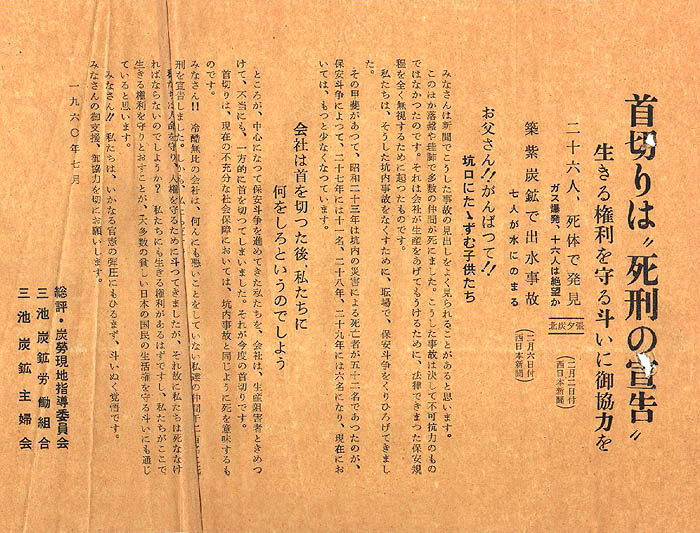 首切りは〝死刑の宣告〟
生きる権利を守る斗いに御協力を
二十六人、死体で発見
ガス爆発、十六人は絶望か
北炭夕張
二月二日付
(西日本新聞)
築紫炭鉱で出水事故
七人が水にのまる
二月六日付
(西日本新聞)
お父さん!!がんばつて!!
坑口にたゝずむ子供たち
みなさんは新聞でこうした事故の見出しをよく見られることがあると思います。
このほか落盤や珪肺で多数の仲間が死にました。こうした事故は決して不可抗力のもの
ではなかつたのです。それは会社が生産をあげてもうけるために、法律できまつた保安規
程を全く無視するために起つたものです。
私たちは、そうした坑内事故をなくすために、職場で、保安斗争をくりひろげてきまし
た。
その甲斐があつて、昭和二十三年は坑内の災害による死亡者が五十二名であつたのが、
保安斗争によつて、二十七年には十一名、二十八年、二十九年には六名になり、現在にお
いては、もつと少なくなつています。
会社は首を切つた後、私たちに
何をしろというのでしよう
ところが、中心になつて保安斗争を進めてきた私たちを、会社は、生産阻害者ときめつ
けて、不当にも、一方的に首を切つてしまいました。それが今度の首切りです。
首切りは、現在の不充分な社会保障においては、坑内事故と同じように死を意味するも
のです。
みなさん!! 冷酷無比の会社は、何んにも悪いことをしていない私達の仲間
刑を宣告しました。
守り、人権を守るために斗つてきましたが、それ故に私たちは死ななけ
ればならないのでしようか? 私たちにも生きる権利があるはずですし、私たちがここで
生きる権利を守りとおすことが、大多数の貧しい日本の国民の生活権を守る斗いにも通じ
ていると思います。
みなさん!! 私たちは、いかなる官憲の弾圧にもひるまず、斗いぬく覚悟です。
みなさんの御支援、御協力を切にお願いします。
一九六〇年七月
総評・炭労現地指導委員会
三池炭鉱労働組合
三池炭鉱主婦会